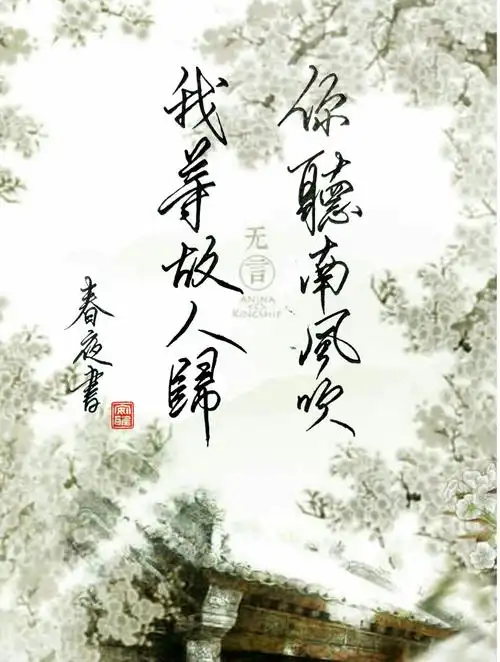 你聽南風吹
我等故人歸
春夜書
无
言
ANINA
KINGSHIP